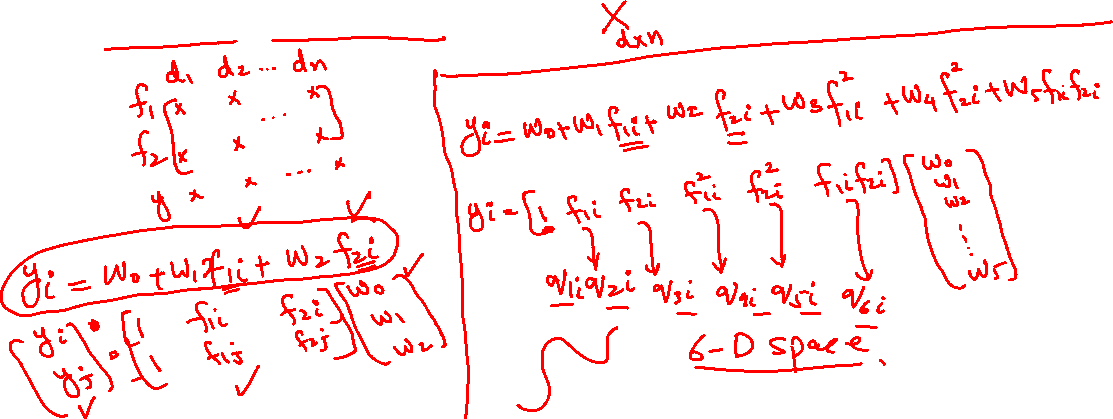 X_{d×n}
d₁ d₂ ... dn
f₁ [ x x ... x ]
f₂ [ x x x ]
y x x ... x
yᵢ = w₀ + w₁ f₁ᵢ + w₂ f₂ᵢ
[ yᵢ ; yⱼ ] = [ 1 f₁ᵢ f₂ᵢ ; 1 f₁ⱼ f₂ⱼ ] [ w₀ ; w₁ ; w₂ ]
yᵢ = w₀ + w₁ f₁ᵢ + w₂ f₂ᵢ + w₃ f₁ᵢ² + w₄ f₂ᵢ² + w₅ f₁ᵢ f₂ᵢ
yᵢ = [ 1 f₁ᵢ f₂ᵢ f₁ᵢ² f₂ᵢ² f₁ᵢ f₂ᵢ ] [ w₀ ; w₁ ; w₂ ; ... ; w₅ ]
q₁ᵢ q₂ᵢ q₃ᵢ q₄ᵢ q₅ᵢ q₆ᵢ
6-D space.